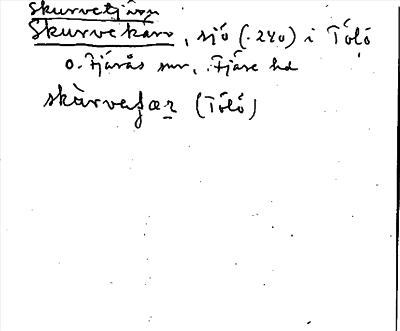 Skurvetjärn
Skurvekärr, sjö (.240) i Tölö
o. Fjärås snr, Fjäre hd
skùrvefær (Tölö)